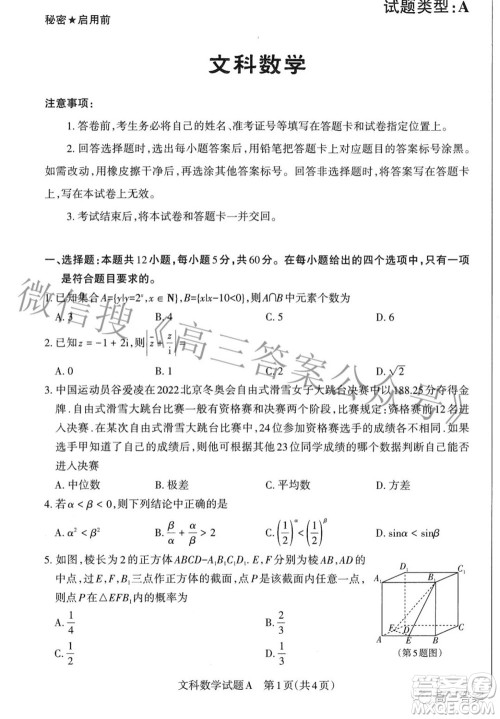 试题类型:A
秘密★启用前
文科数学
注意事项:
1. 答卷前,考生务必将自己的姓名、准考证号等填写在答题卡和试卷指定位置上。
2. 回答选择题时,选出每小题答案后,用铅笔把答题卡上对应题目的答案标号涂黑。
如需改动,用橡皮擦干净后,再选涂其他答案标号。回答非选择题时,将答案写在答题卡
上,写在本试卷上无效。
3. 考试结束后,将本试卷和答题卡一并交回。
一、选择题:本题共12小题,每小题5分,共60分。在每小题给出的四个选项中,只有一项
是符合题目要求的。
1. 已知集合A={y|y=2ˣ,x∈N},B={x|x-10<0},则A∩B中元素个数为
A. 3 B. 4 C. 5 D. 6
2. 已知z=-1+2i,则
A. 0 B. 1 C. 2 D. √2
3. 中国运动员谷爱凌在2022北京冬奥会自由式滑雪女子大跳台决赛中以188.25分夺得金
牌.自由式滑雪大跳台比赛一般有资格赛和决赛两个阶段,比赛规定:资格赛前12名进
入决赛.在某次自由式滑雪大跳台比赛中,24位参加资格赛选手的成绩各不相同.如果
选手甲知道了自己的成绩后,则他可根据其他23位同学成绩的哪个数据判断自己能否
进入决赛
A. 中位数 B. 极差 C. 平均数 D. 方差
4. 若α<β<0,则下列结论中正确的是
A. α²<β² B. β/α+α/β>2 C. (1/2)^α<(1/2)^β D. sinα<sinβ
5. 如图,棱长为2的正方体ABCD-A₁B₁C₁D₁中,点E,F分别为棱AB,AD的
中点,过E,F,B₁三点作正方体的截面,点P是该截面内任意一点,
则点P在△EFB₁内的概率为
A. 1/4 B. 2/3
C. 1/2 D. 1/3
D₁ C₁
A₁ B₁
A B C
(第5题图)
文科数学试题A 第1页(共4页)
微信搜《高三答案公众号》